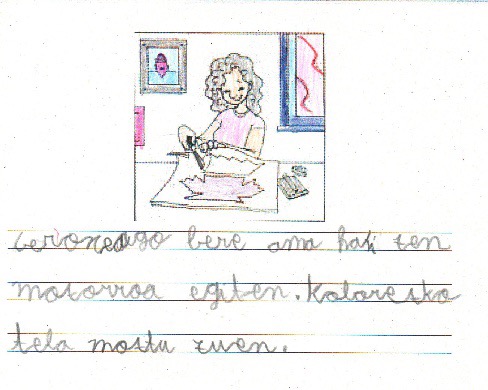 beronedago bere ama hasi zen
motorroa egiten. Koloresko
tela moztu zuen.